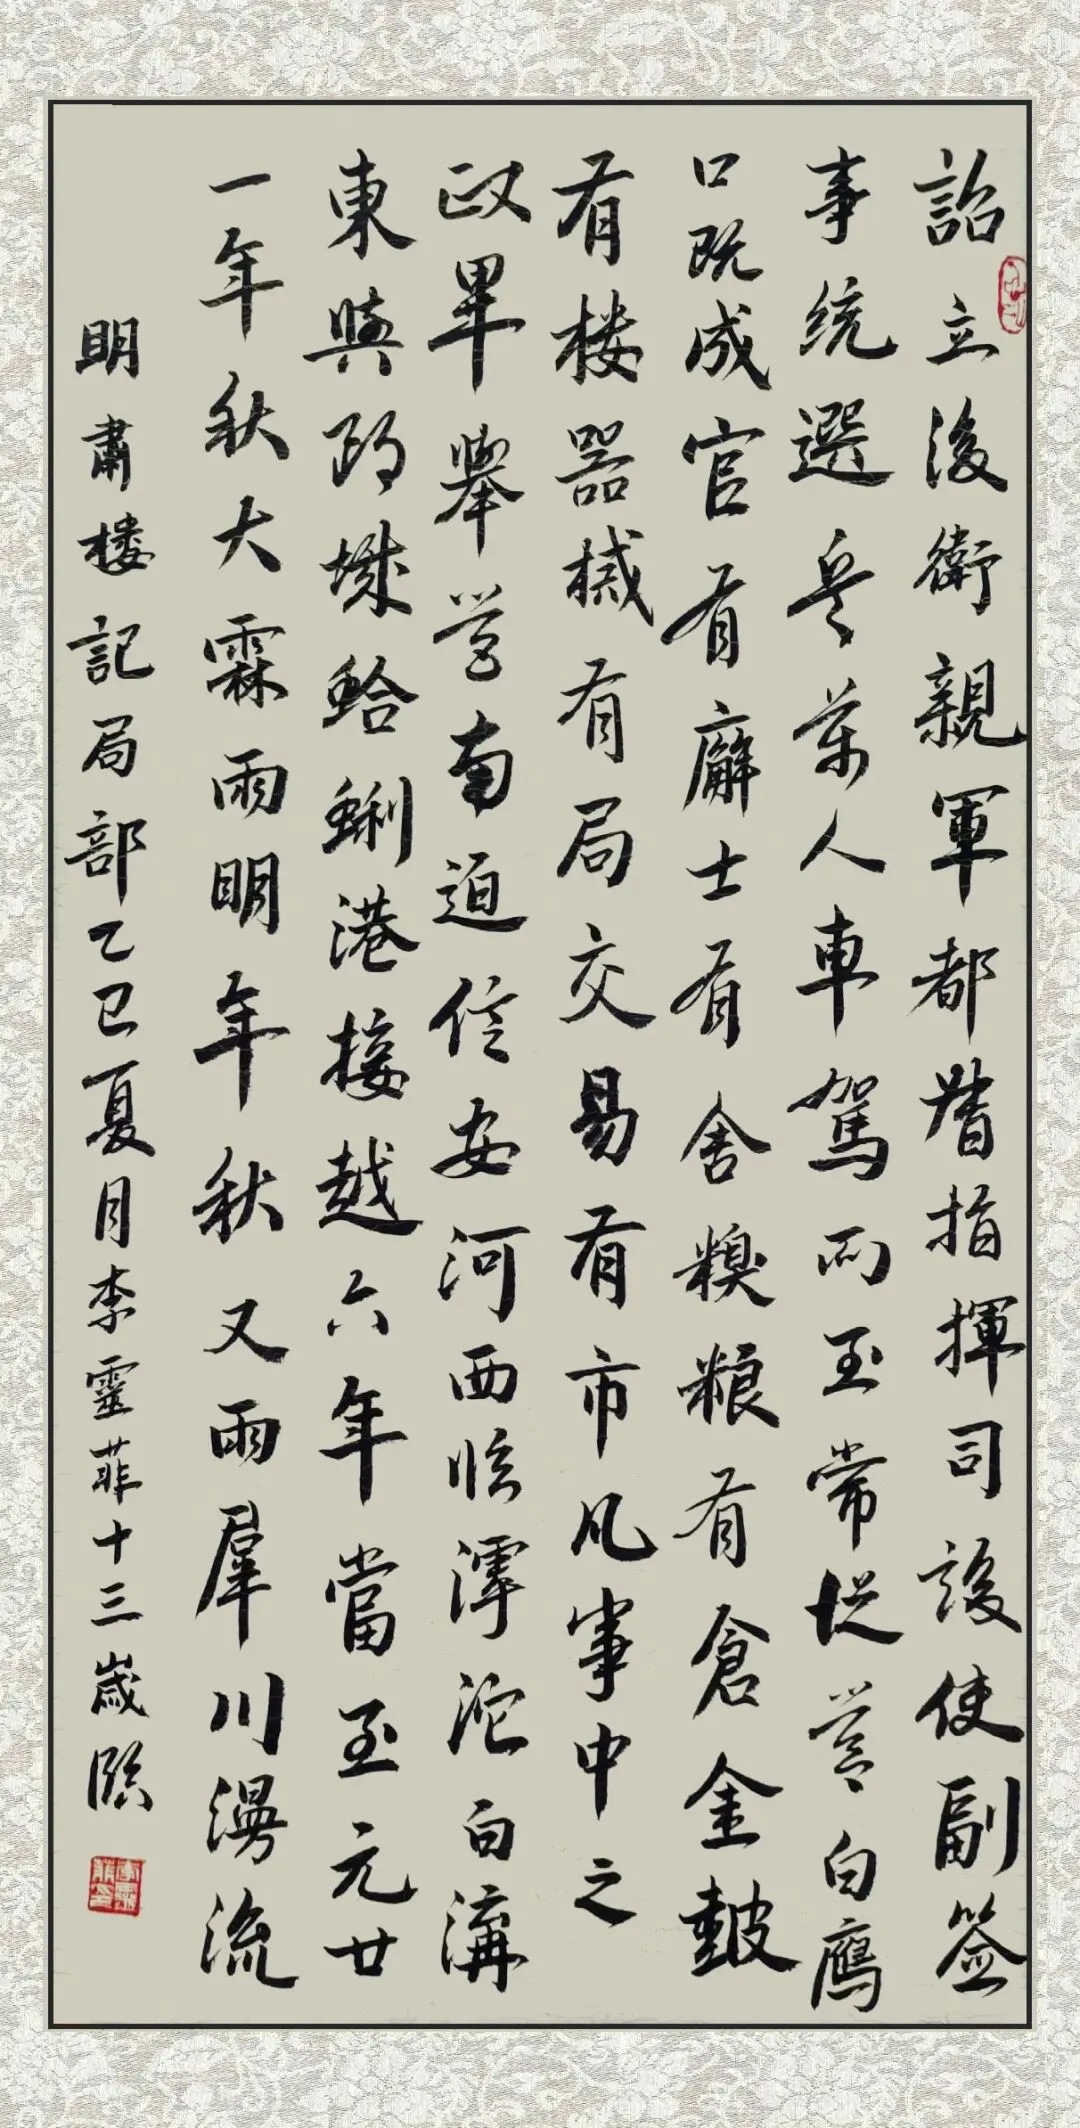 詔立後衛親軍都督指揮司設使副簽
事統選兵萬人車駕所至常從營白鴈
口既成官有廨士有舍糗粮有倉金鼓
有楼器械有局交易有市凡事中之
政畢舉營南迫信安河西臨滹沱白溝
東與蛤蜊港接越六年當至元廿
一年秋大霖雨明年秋又雨羣川漫流
明肅楼記局部乙巳夏月李靈菲十三歲臨